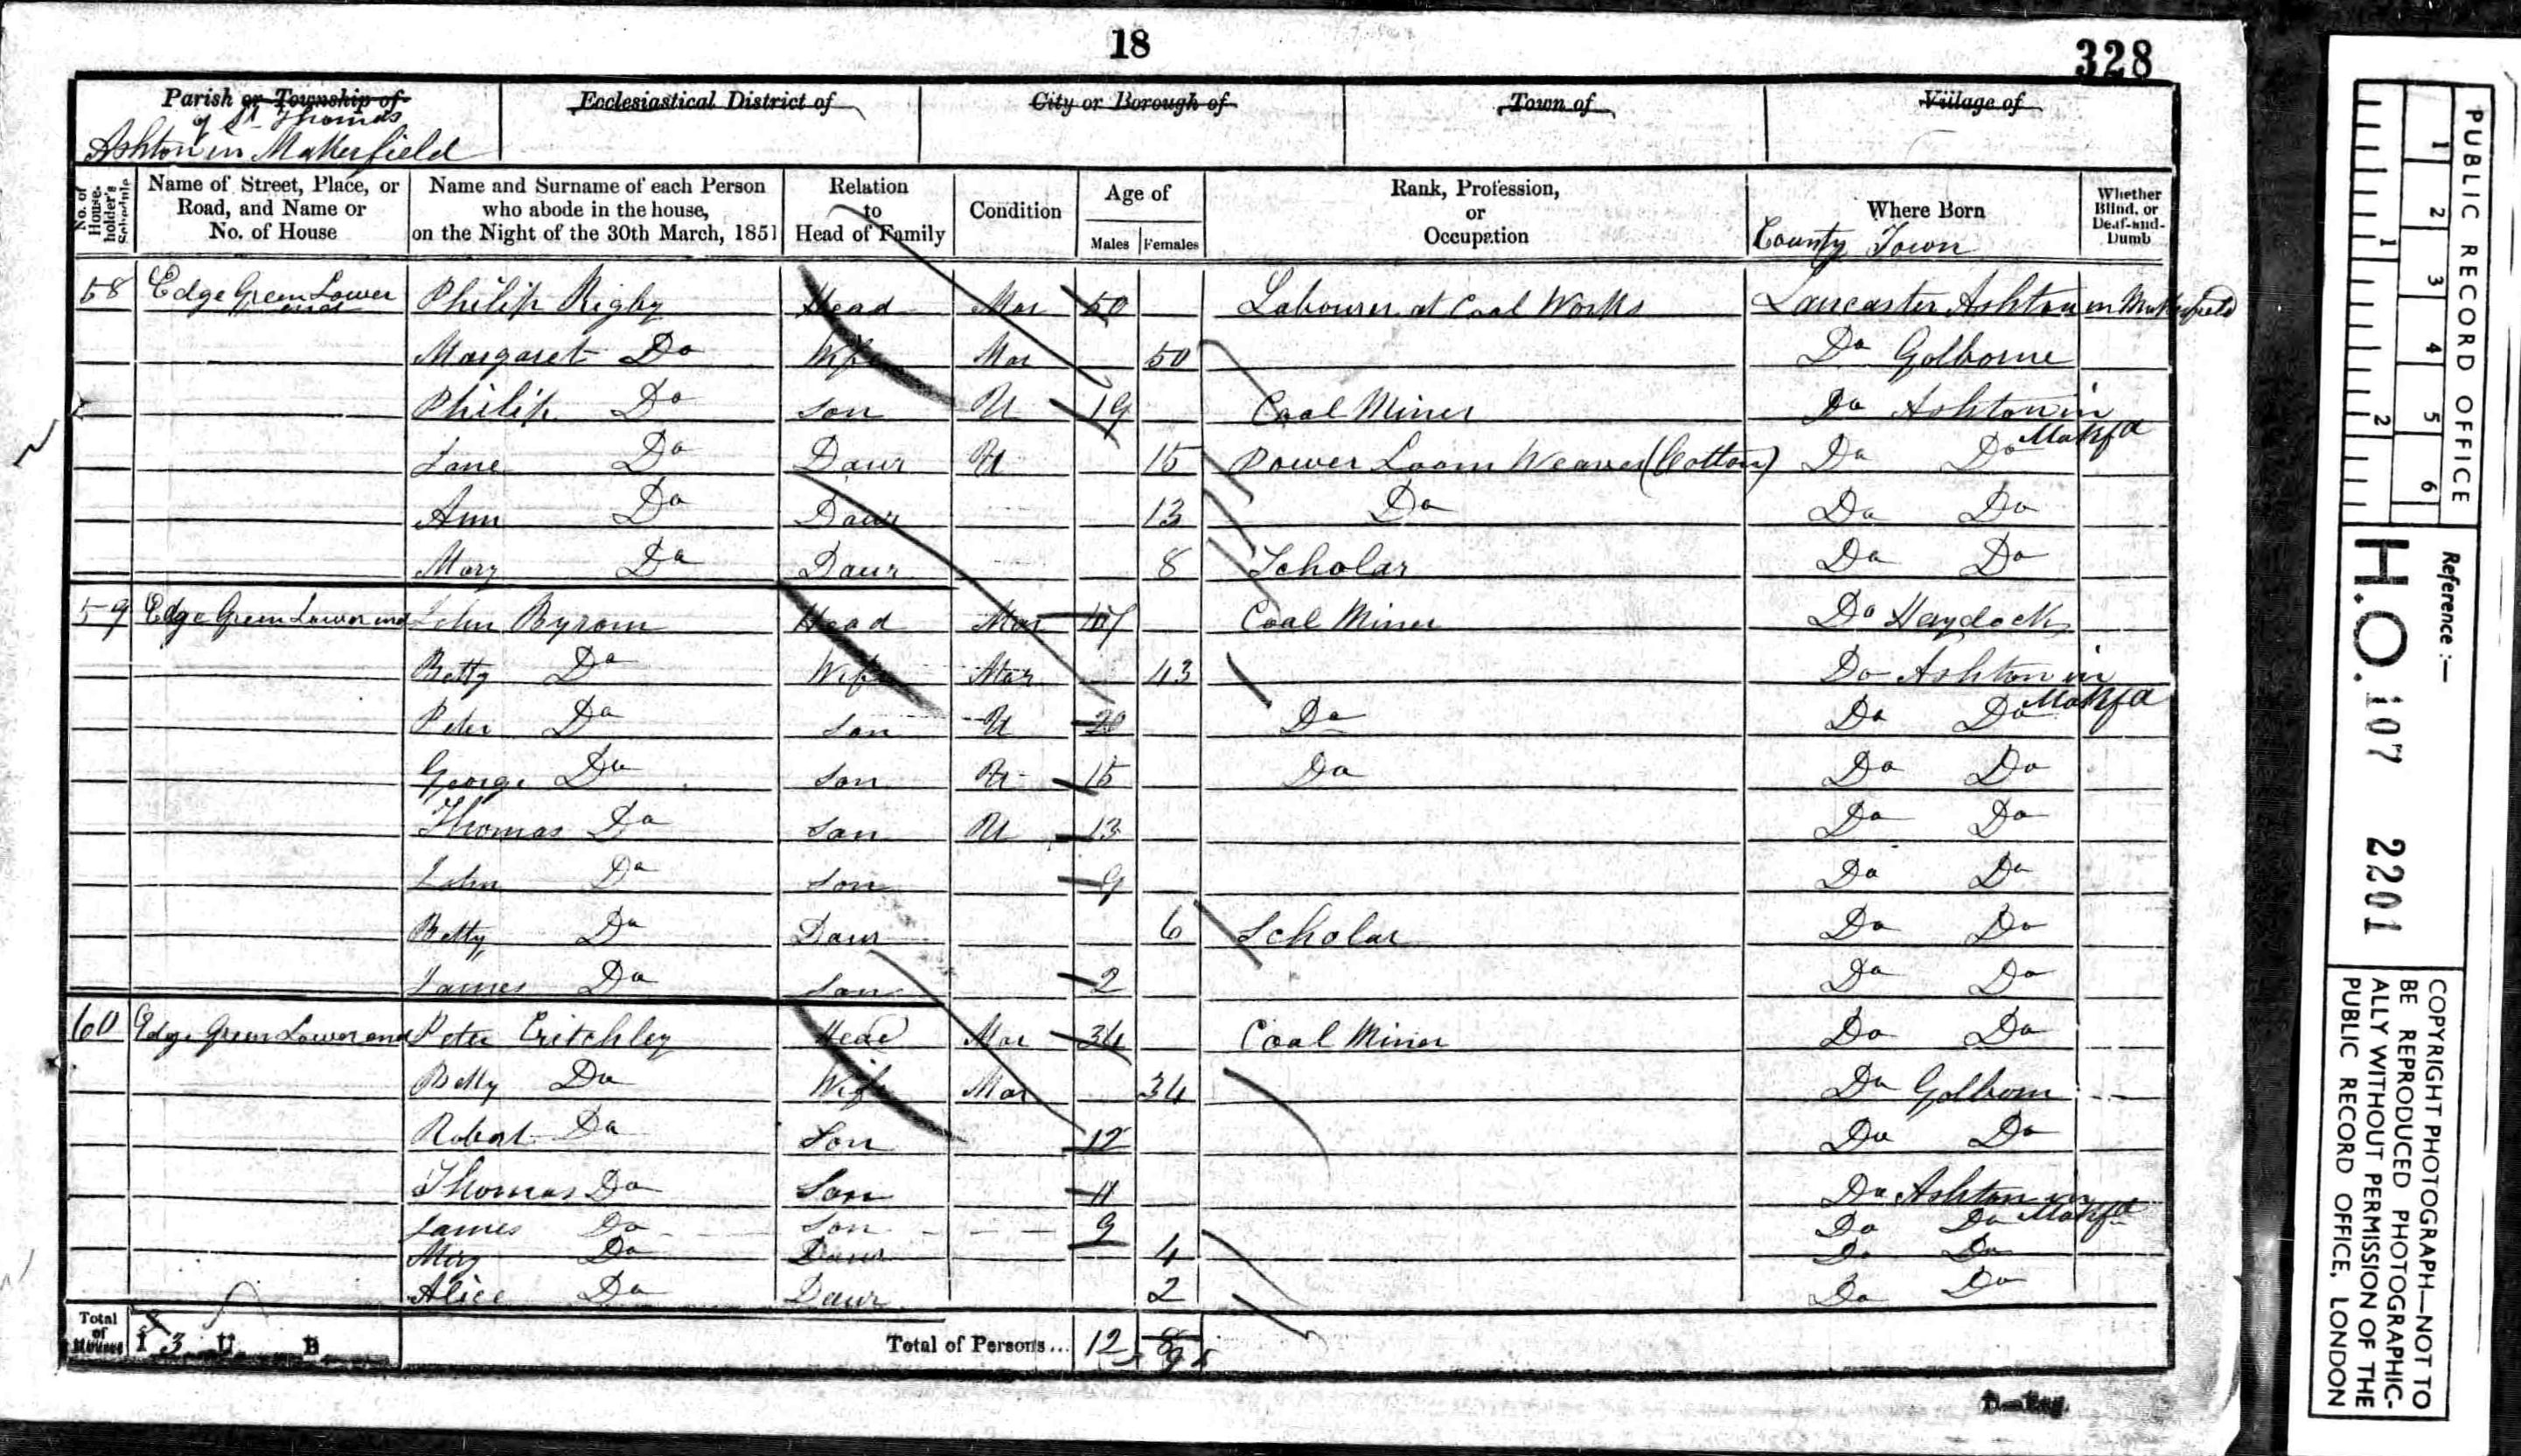 18
328
Parish or Township of
of St Thomas
Ashton in Makerfield
Ecclesiastical District of
City or Borough of
Town of
Village of
No. of House-holder's Schedule
Name of Street, Place, or Road, and Name or No. of House
Name and Surname of each Person who abode in the house, on the Night of the 30th March, 1851
Relation to Head of Family
Condition
Age of
Males
Females
Rank, Profession, or Occupation
Where Born
County Town
Whether Blind, or Deaf-and-Dumb
58 Edge Green Lower end Philip Rigby Head Mar 50 Labourer at Coal Works Lancaster Ashton in Makerfield
Margaret Do Wife Mar 50 Do Golborne
Philip Do Son U 19 Coal Miner Do Ashton in Makfd
Jane Do Daur U 15 Power Loom Weaver (Cotton) Do Do
Ann Do Daur 13 Do Do Do
Mary Do Daur 8 Scholar Do Do
59 Edge Green Lower end John Byrom Head Mar 47 Coal Miner Do Haydock
Betty Do Wife Mar 43 Do Ashton in Makfd
Peter Do Son U 20 Do Do Do
George Do Son U 15 Do Do Do
Thomas Do Son U 13 Do Do
John Do Son 9 Do Do
Betty Do Daur 6 Scholar Do Do
James Do Son 2 Do Do
60 Edge Green Lower end Peter Critchley Head Mar 34 Coal Miner Do Do
Betty Do Wife Mar 34 Do Golborn
Robert Do Son 12 Do Do
Thomas Do Son 11 Do Ashton in Makfd
James Do Son 9 Do Do
Mary Do Daur 4 Do Do
Alice Do Daur 2 Do Do
Total of Houses I 3 U B Total of Persons... 12 8 9
PUBLIC RECORD OFFICE
1 2 3 4 5 6
1 2
Reference :—
H.O. 107 2201
COPYRIGHT PHOTOGRAPH—NOT TO BE REPRODUCED PHOTOGRAPHIC-ALLY WITHOUT PERMISSION OF THE PUBLIC RECORD OFFICE, LONDON